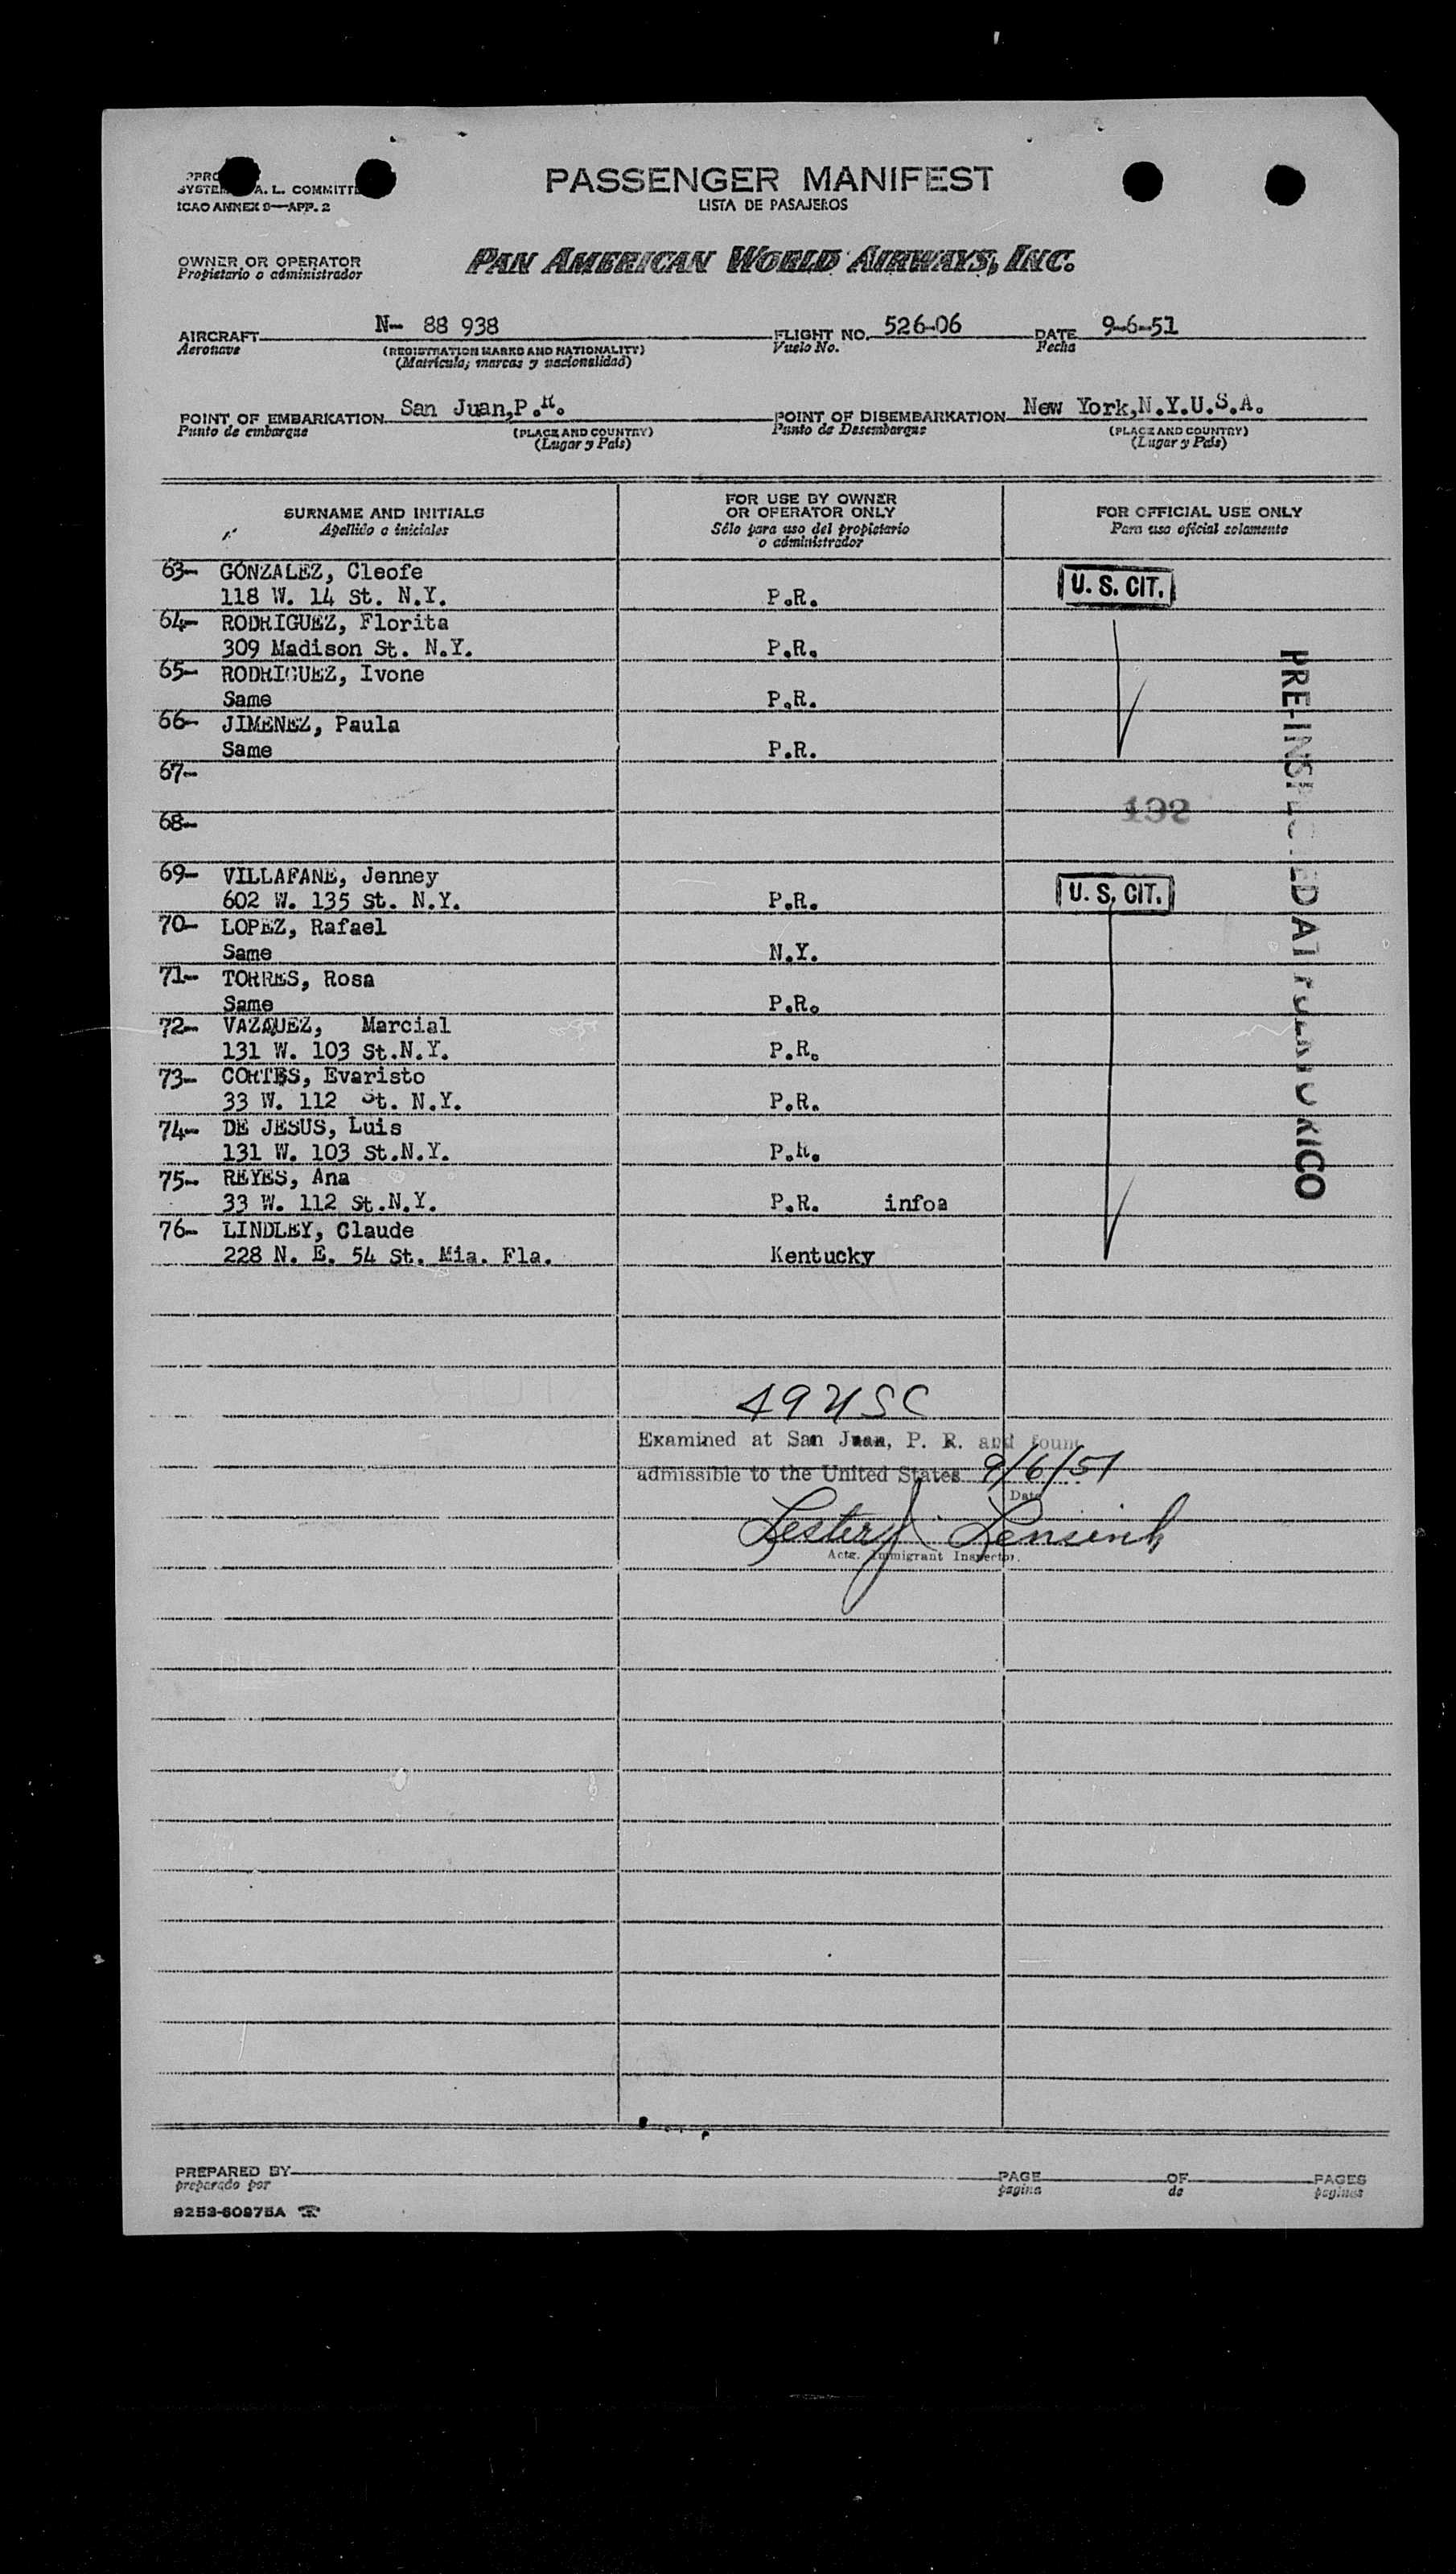 PASSENGER MANIFEST
LISTA DE PASAJEROS
A. L. COMMITT
ICAO ANNEX 9—APP. 2
OWNER OR OPERATOR
Propietario o administrador
PAN AMERICAN WORLD AIRWAYS, INC.
AIRCRAFT N- 88 938 FLIGHT NO. 526-06 DATE 9-6-51
Aeronave (REGISTRATION MARKS AND NATIONALITY) Vuelo No. Fecha
(Matricula; marcas y nacionalidad)
POINT OF EMBARKATION San Juan,P.R. POINT OF DISEMBARKATION New York,N.Y.U.S.A.
Punto de embarque (PLACE AND COUNTRY) Punto de Desembarque (PLACE AND COUNTRY)
(Lugar y País) (Lugar y País)
SURNAME AND INITIALS
Apellido o iniciales
FOR USE BY OWNER
OR OPERATOR ONLY
Sólo para uso del propietario
o administrador
FOR OFFICIAL USE ONLY
Para uso oficial solamente
63- GONZALEZ, Cleofe
118 W. 14 St. N.Y. P.R. U. S. CIT.
64- RODRIGUEZ, Florita
309 Madison St. N.Y. P.R.
65- RODRIGUEZ, Ivone
Same P.R.
66- JIMENEZ, Paula
Same P.R.
67-
192
68-
69- VILLAFANE, Jenney
602 W. 135 St. N.Y. P.R. U. S. CIT.
70- LOPEZ, Rafael
Same N.Y.
71- TORRES, Rosa
Same P.R.
72- VAZQUEZ, Marcial
131 W. 103 St.N.Y. P.R.
73- CORTES, Evaristo
33 W. 112 St. N.Y. P.R.
74- DE JESUS, Luis
131 W. 103 St.N.Y. P.R.
75- REYES, Ana
33 W. 112 St.N.Y. P.R. infoa
76- LINDLEY, Claude
228 N. E. 54 St. Mia. Fla. Kentucky
PRE-INSPECTED AT PUERTO RICO
49 USC
Examined at San Juan, P. R. and found
admissible to the United States 9/6/51
Date
Lester J. Lensink
Actg. Immigrant Inspector.
PREPARED BY PAGE OF PAGES
preparado por pagina de paginas
9253-60975A